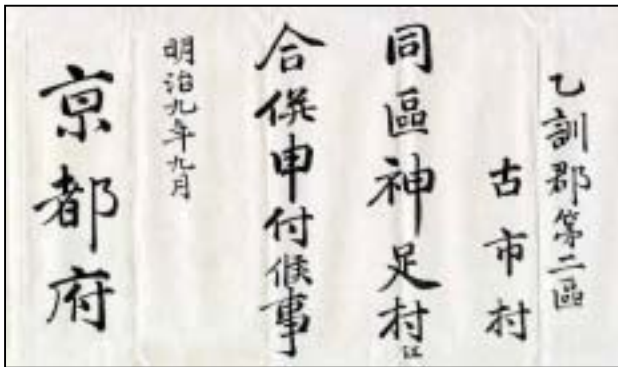 乙訓郡第二區
古市村
同區神足村江
合併申付候事
明治九年九月
京都府